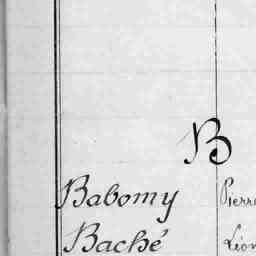 B
Babomy Pierre
Baché Léon